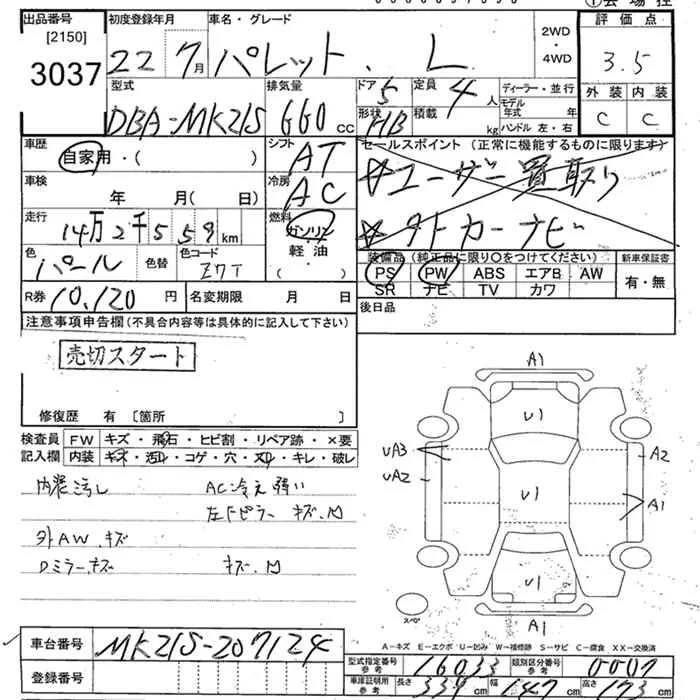 ①会場控
出品番号 初度登録年月 車名・グレード 2WD・4WD 評価点
[2150]
3037 22 7月 パレット. L 3.5
型式 排気量 ドア 5 定員 4 人 ディーラー・並行 外装 内装
DBA-MK21S 660 CC 形状 HB 積載 kg モデル年式 年 ハンドル 左・右 C C
車歴 自家用・( ) シフト AT セールスポイント (正常に機能するものに限ります)
☆ユーザー買取り
車検 年 月( 日) 冷房 AC
☆外トカーナビ
走行 14万2千559km 燃料 ガソリン 軽油 ( )
装備品 (純正品に限り〇をつけてください) 新車保証書
色 パール 色替 色コード Z7T
PS PW ABS エアB AW 有・無
SR ナビ TV カワ
R券 10,120円 名変期限 月 日
後日品
注意事項申告欄 (不具合内容等は具体的に記入して下さい)
売切スタート
修復歴 有 [箇所 ]
検査員 FW キズ・飛石・ヒビ割・リペア跡・×要
記入欄 内装 キズ・汚れ・コゲ・穴・スレ・キレ・破レ
内装汚し AC冷え弱い
左ドピラー キズ.凹
外AW キズ
Dミラーキズ キズ.凹
A1
U1
UA3 A2
UA2
U1 A1
U1
スペア
A1
A-キズ E-エクボ U-凹み W-補修跡 S-サビ C-腐食 XX-交換済
車台番号 MK21S-207124
型式指定番号 参考 16033 類別区分番号 参考 0007
登録番号
車庫証明用 参考 長さ 339cm 幅 147cm 高さ 173cm